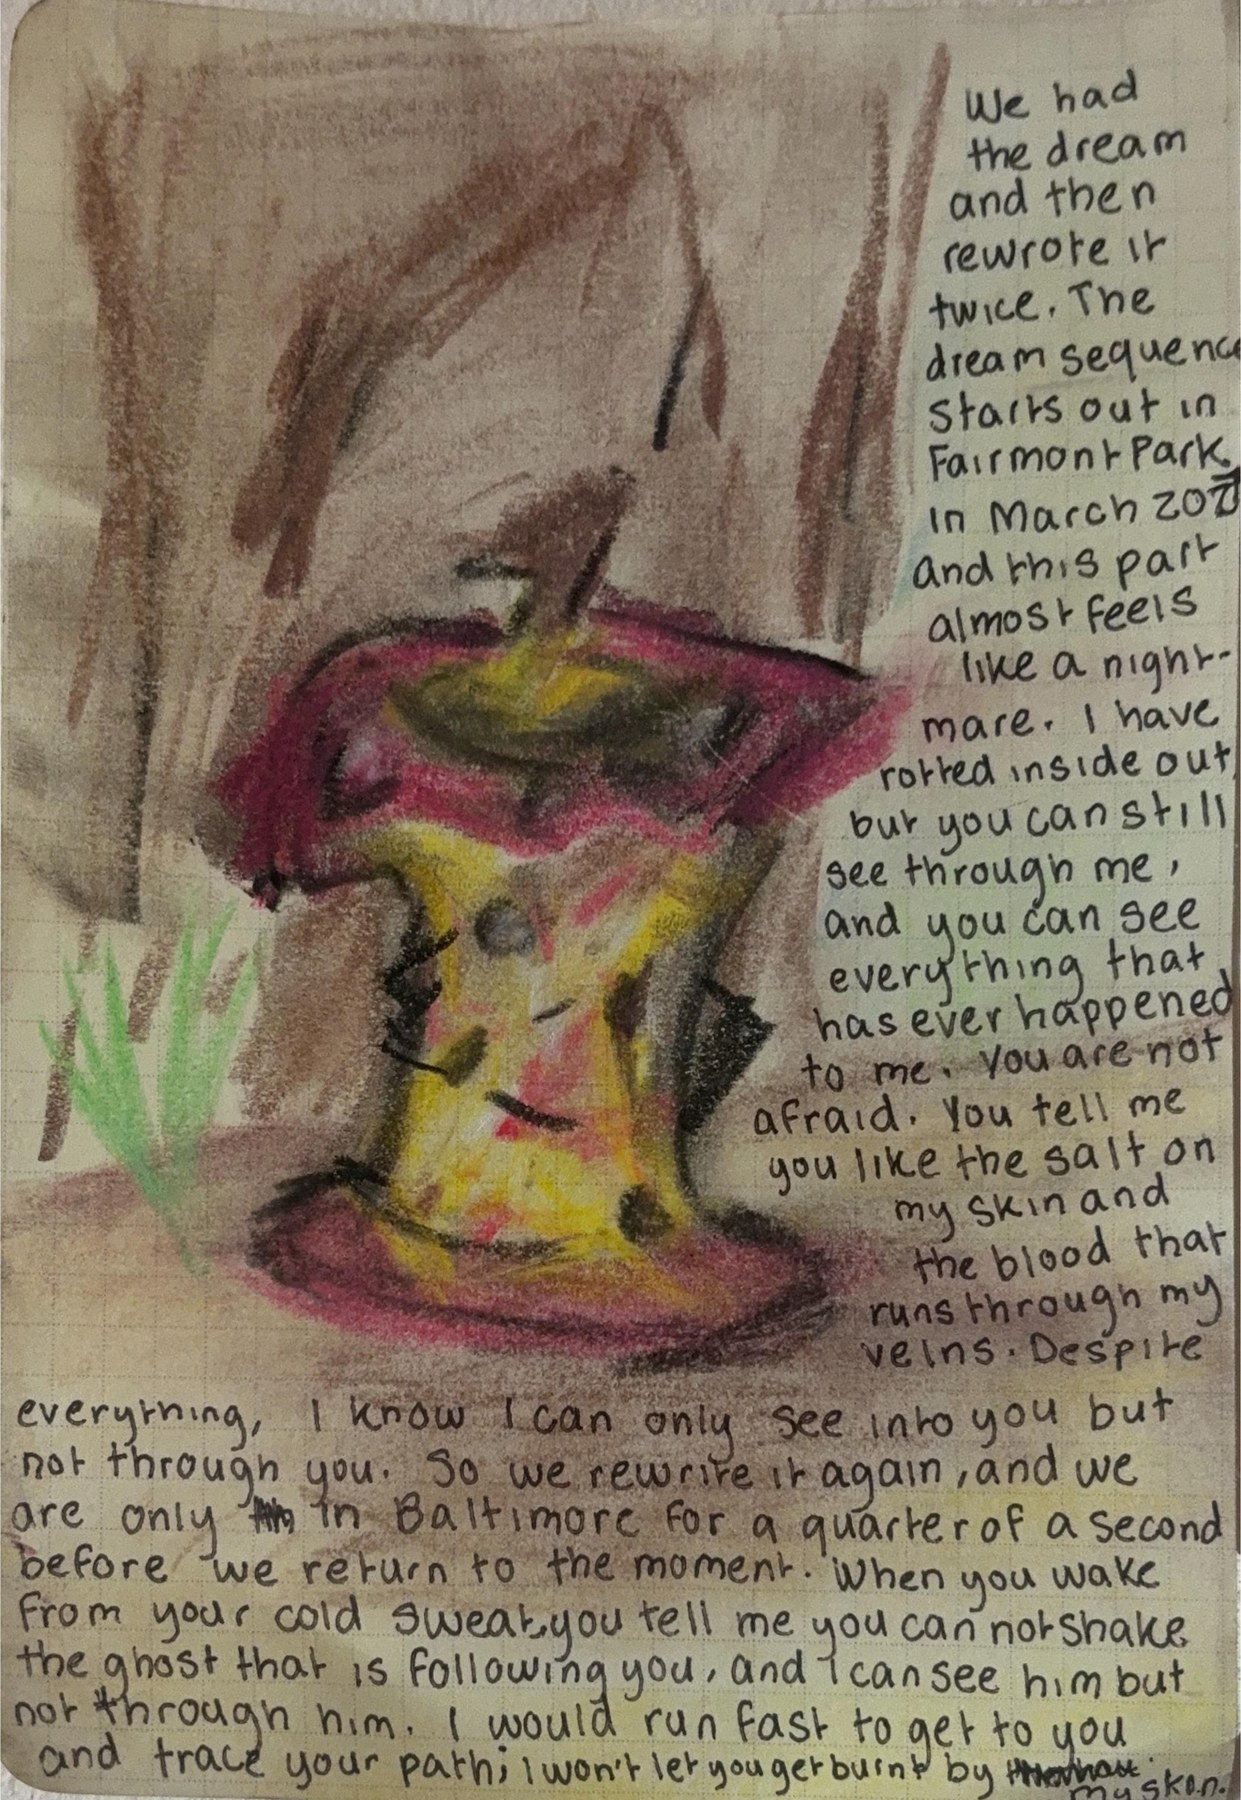 We had
the dream
and then
rewrote it
twice. The
dream sequence
starts out in
Fairmont Park
in March
and this part
almost feels
like a night-
mare. I have
rotted inside out,
but you can still
see through me,
and you can see
everything that
has ever happened
to me. You are not
afraid. You tell me
you like the salt on
my skin and
the blood that
runs through my
veins. Despite
everything, I know I can only see into you but
not through you. So we rewrite it again, and we
are only in Baltimore for a quarter of a second
before we return to the moment. When you wake
from your cold sweat, you tell me you can not shake
the ghost that is following you, and I can see him but
not through him. I would run fast to get to you
and trace your path; I won't let you get burnt by
my skin.